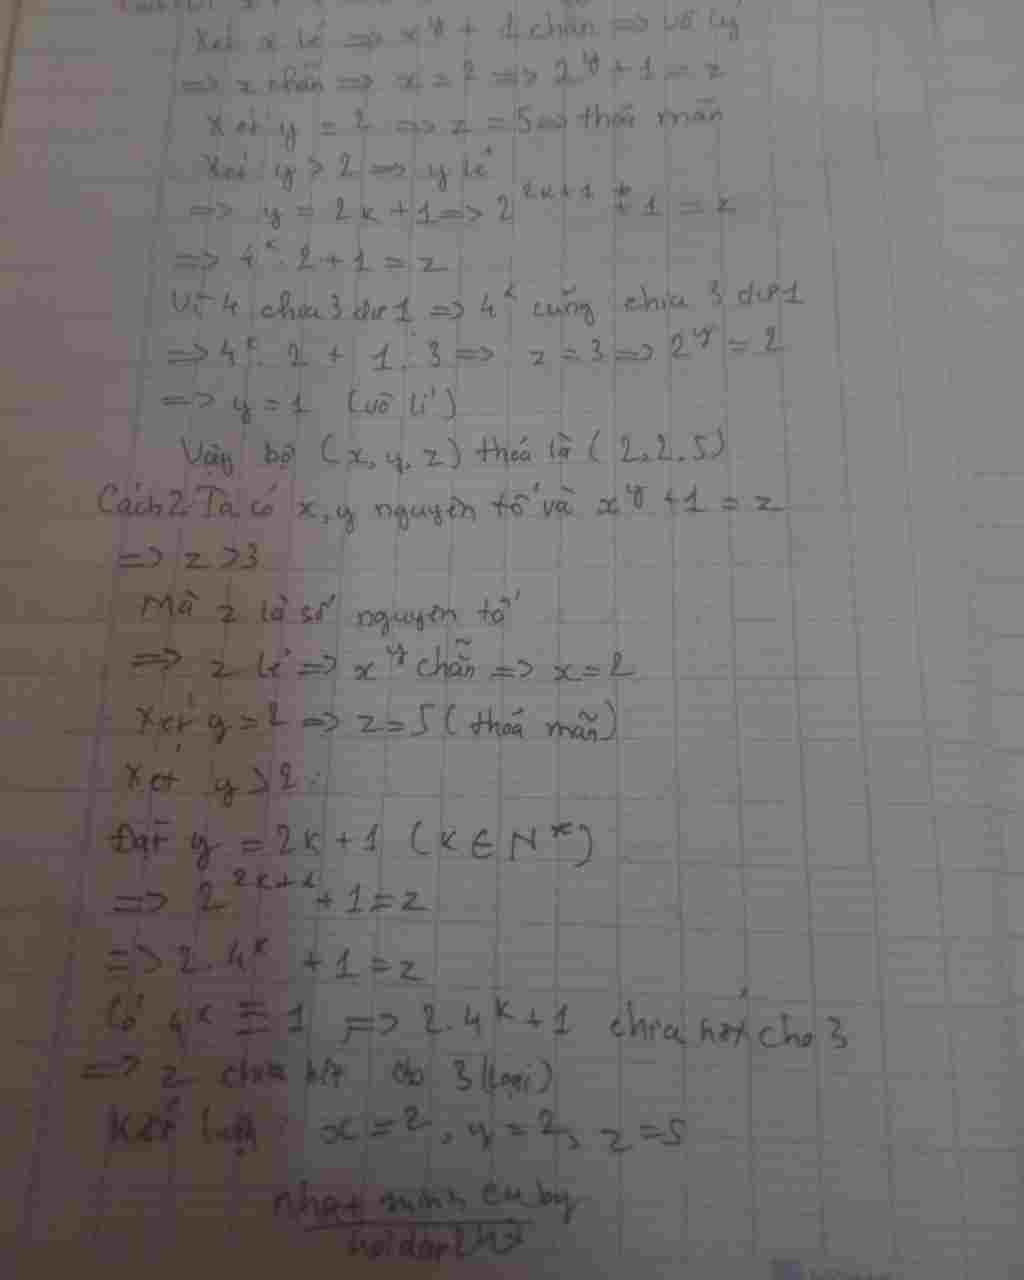 Xét x lẻ => x^y + 1 chẵn => vô lý
=> x chẵn => x = 2 => 2^y + 1 = z
Xét y = 2 => z = 5 => thoả mãn
Xét y > 2 => y lẻ
=> y = 2k + 1 => 2^{2k+1} + 1 = z
=> 4^k . 2 + 1 = z
Vì 4 chia 3 dư 1 => 4^k cũng chia 3 dư 1
=> 4^k . 2 + 1 ⋮ 3 => z = 3 => 2^y = 2
=> y = 1 (vô lí)
Vậy bộ (x, y, z) thoả là (2, 2, 5)
Cách 2 Ta có x, y nguyên tố và x^y + 1 = z
=> z > 3
Mà z là số nguyên tố
=> z lẻ => x^y chẵn => x = 2
Xét y = 2 => z = 5 (thoả mãn)
Xét y > 2 :
Đặt y = 2k + 1 (k ∈ N*)
=> 2^{2k+1} + 1 = z
=> 2.4^k + 1 = z
Có 4^k ≡ 1 => 2.4^k + 1 chia hết cho 3
=> z chia hết cho 3 (loại)
Kết luận : x = 2, y = 2, z = 5
nhat minh cu by
hoidap247